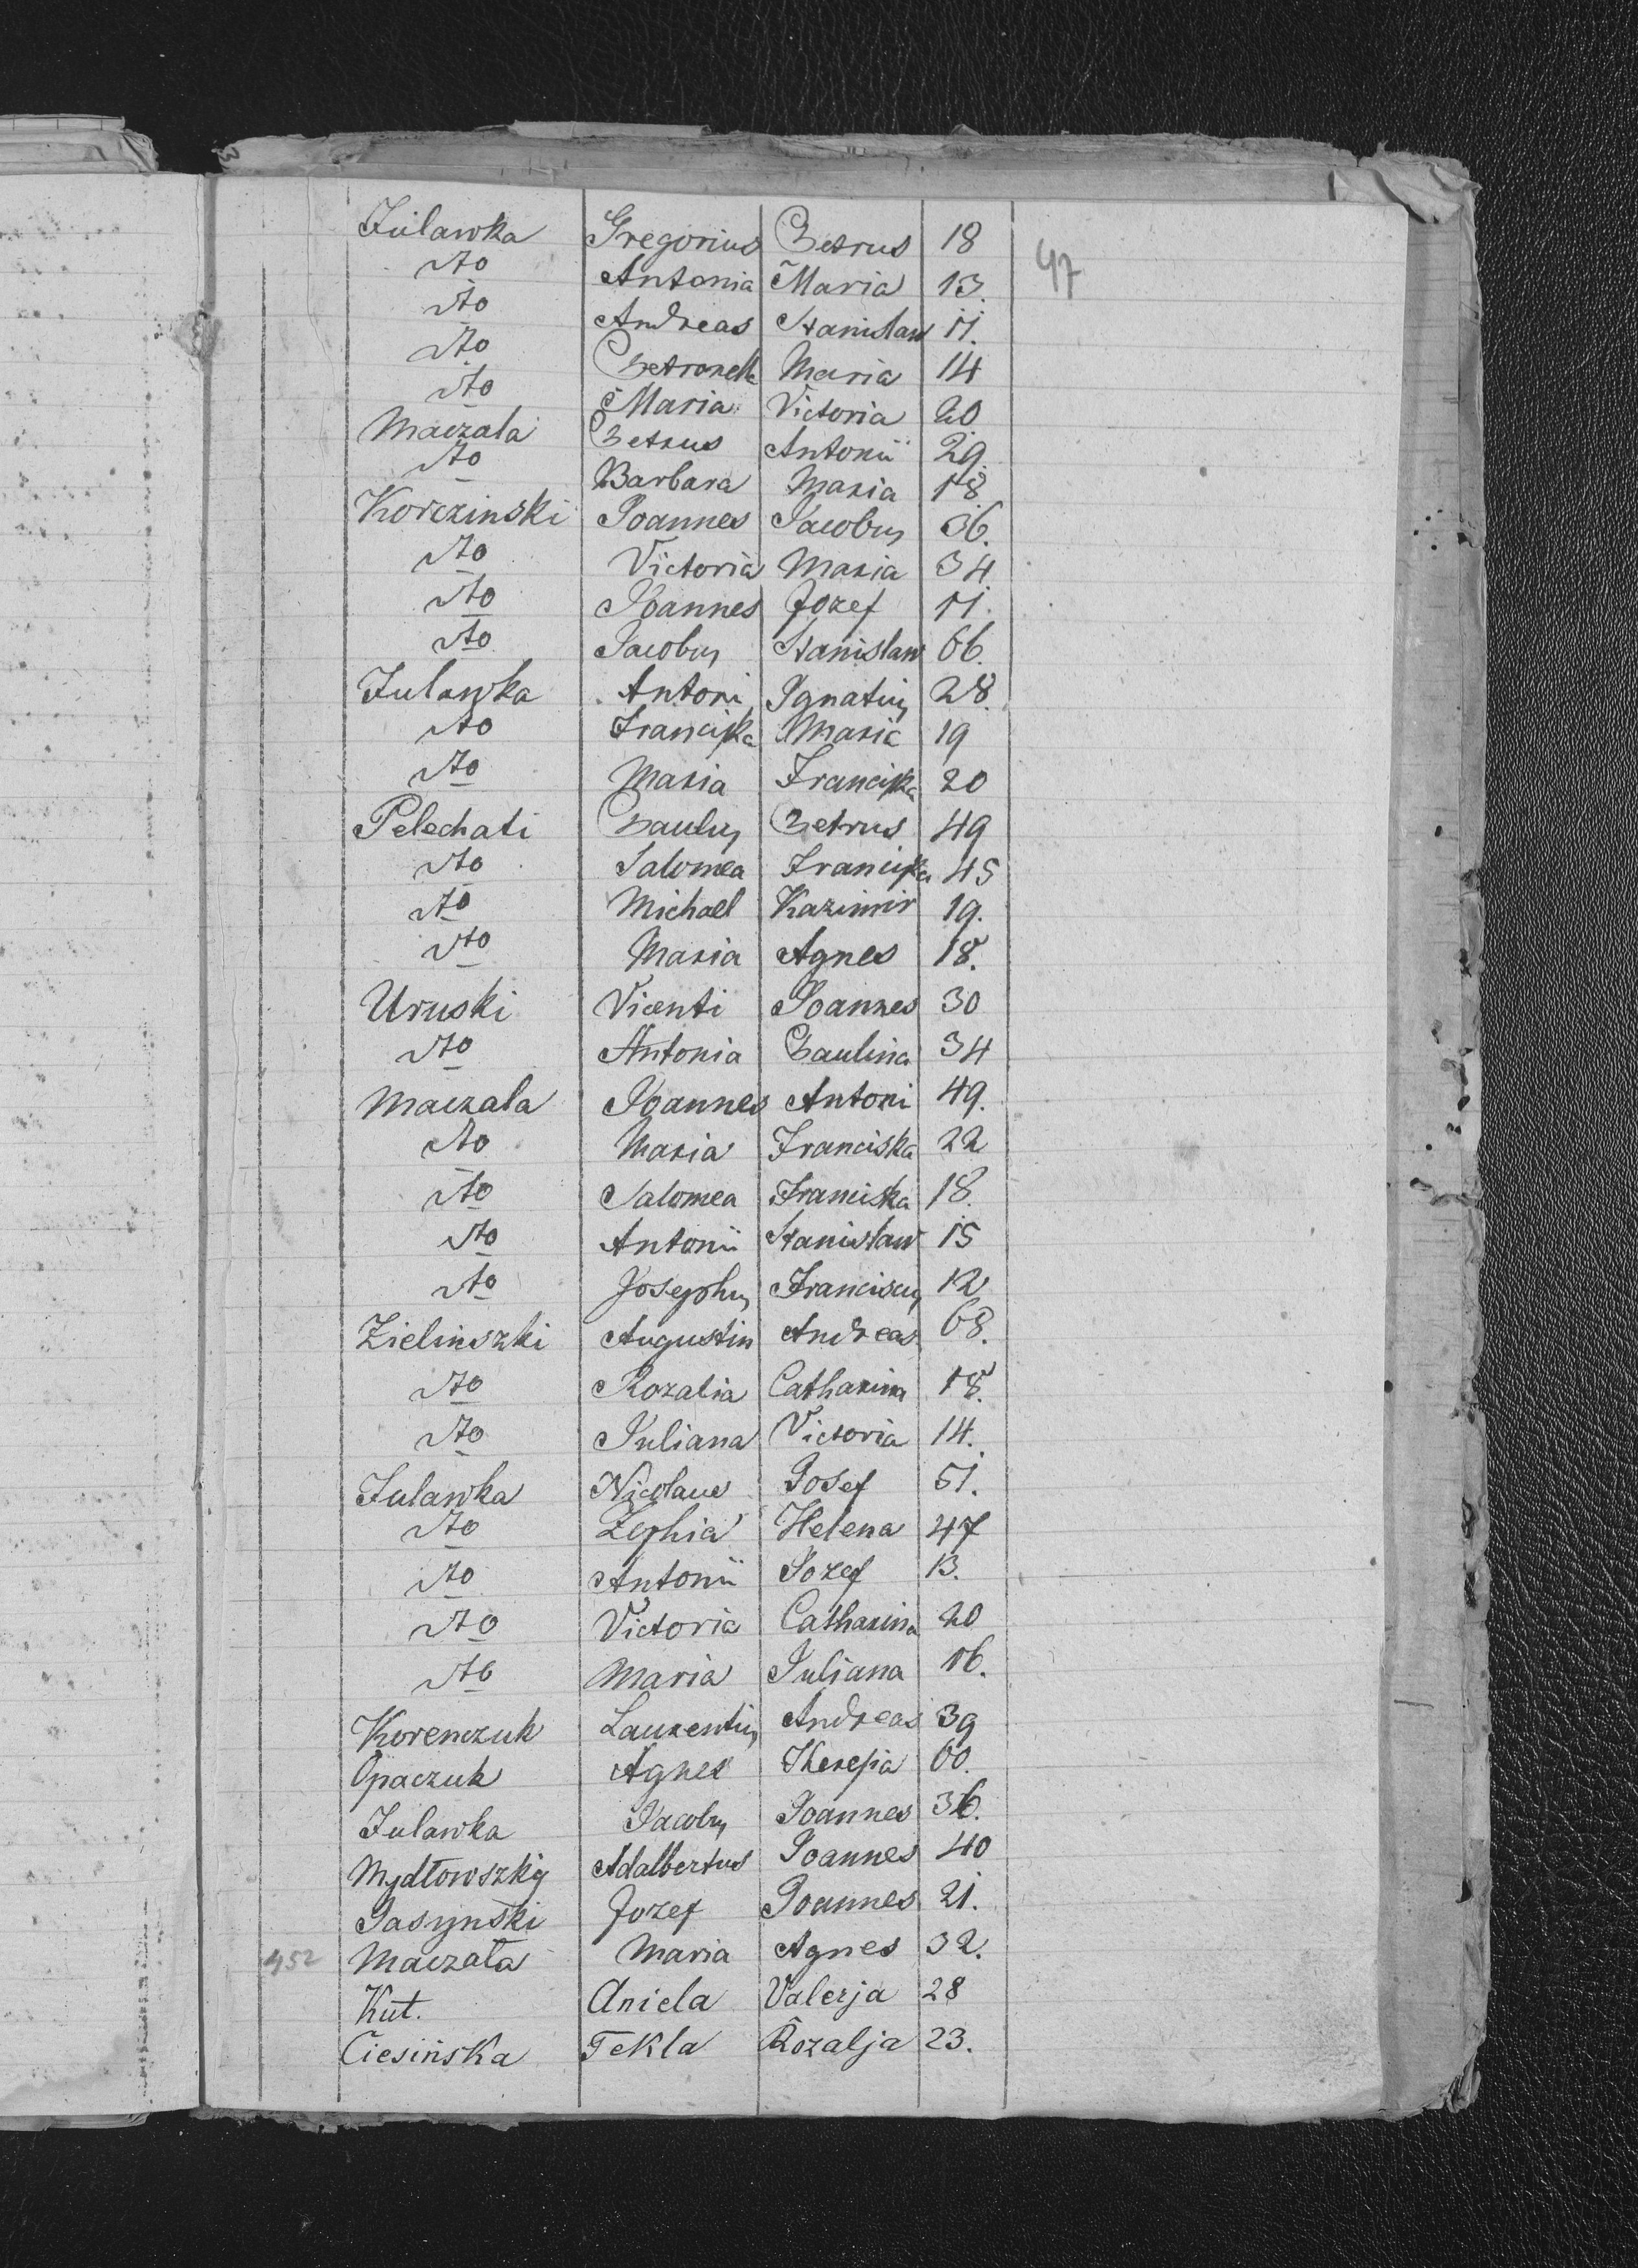 Julawka Gregorius Petrus 18
47
dto Antonia Maria 13.
dto Andreas Stanislaw 11.
dto Petronella Maria 14
dto Maria Victoria 20
Maczala Petrus Antonii 29.
dto Barbara Maria 18
Korczinski Joannes Jacobus 36.
dto Victoria Maria 34
dto Joannes Jozef 11.
dto Jacobus Stanislaw 66.
Julawka Antoni Ignatius 28.
dto Franciska Maria 19
dto Maria Franciska 20
Pelechati Paulus Petrus 49
dto Salomea Franciska 45
dto Michael Kazimir 19.
dto Maria Agnes 18.
Uruski Vicenti Joannes 30
dto Antonia Paulina 34
Maczala Joannes Antoni 49.
dto Maria Franciska 22
dto Salomea Franciska 18.
dto Antonii Stanislaw 15
dto Josephus Franciscus 12
Zielinszki Augustin Andreas 68.
dto Rozalia Catharina 18.
dto Juliana Victoria 14.
Julawka Nicolaus Josef 51.
dto Zophia Helena 47
dto Antonii Jozef 13.
dto Victoria Catharina 20
dto Maria Juliana 16.
Korenczuk Laurentius Andreas 39
Opaczuk Agnes Theresia 60.
Julawka Jacobus Joannes 36.
Mydłowszkij Adalbertus Joannes 40
Jasynski Jozef Joannes 21.
452 Maczała Maria Agnes 32.
Kut. Aniela Valerja 28
Ciesińska Tekla Rozalja 23.